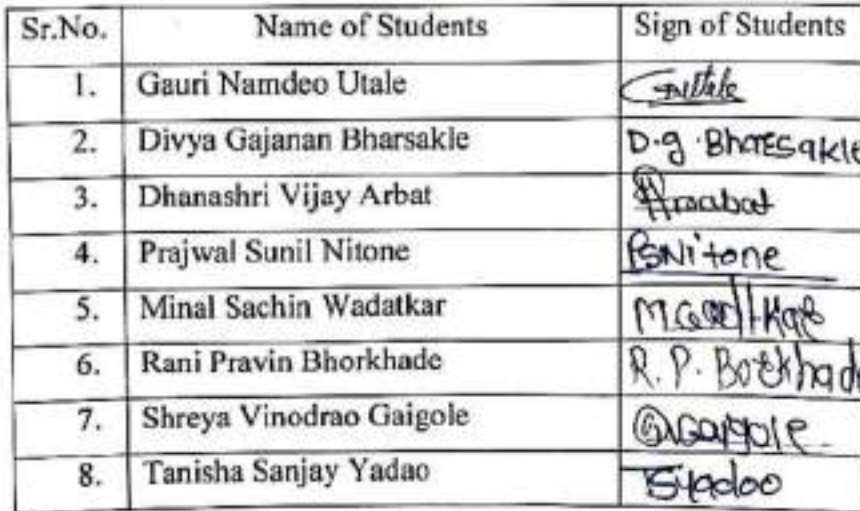 Sr.No. Name of Students Sign of Students
1. Gauri Namdeo Utale
2. Divya Gajanan Bharsakle D.g.Bharsakle
3. Dhanashri Vijay Arbat
4. Prajwal Sunil Nitone PSNitone
5. Minal Sachin Wadatkar
6. Rani Pravin Bhorkhade R. P. Borkhade
7. Shreya Vinodrao Gaigole Gaigole
8. Tanisha Sanjay Yadao TSYadao